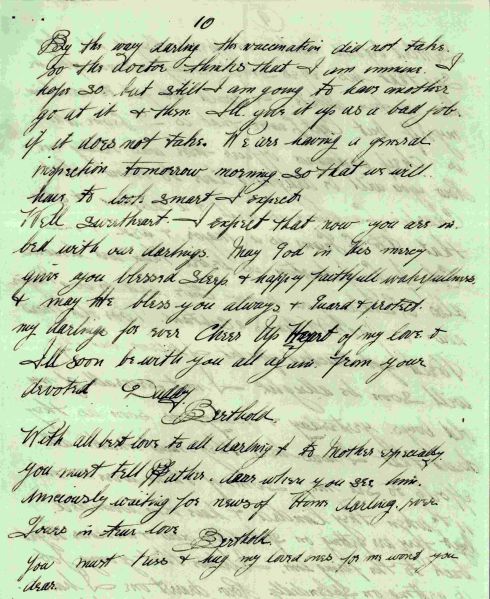 10
By the way darling the vaccination did not take.
So the doctor thinks that I am immune. I
hope so. but still I am going to have another
go at it & then I'll give it up as a bad job.
if it does not take. We are having a general
inspection tomorrow morning so that we will
have to look smart I expect
Well sweetheart I expect that now you are in
bed with our darlings. May God in His mercy
give you blessed sleep & happy faithfull wakefulness
& may He bless you always & Guard & protect.
my darlings for ever Cheer Up Heart of my love &
I'll soon be with you all again. From your
devoted Daddy
Berthold.
With all best love to all darling & to Mother especially
you must tell Father. dear when you see him.
Anxiously waiting for news of Home darling, ever
Yours in true love
Berthold
You must kiss & hug my loved ones for me wont you
dear.